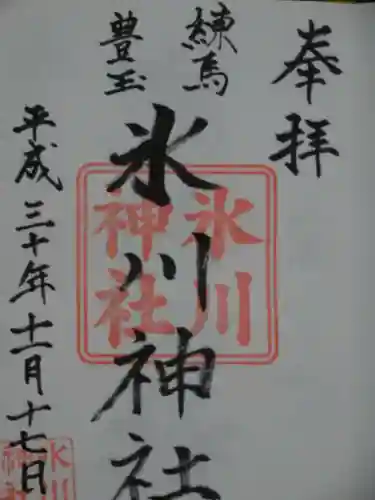 奉拝
練馬
豊玉
氷川神社
氷川
神社
平成三十年十一月十七日
氷川
神社